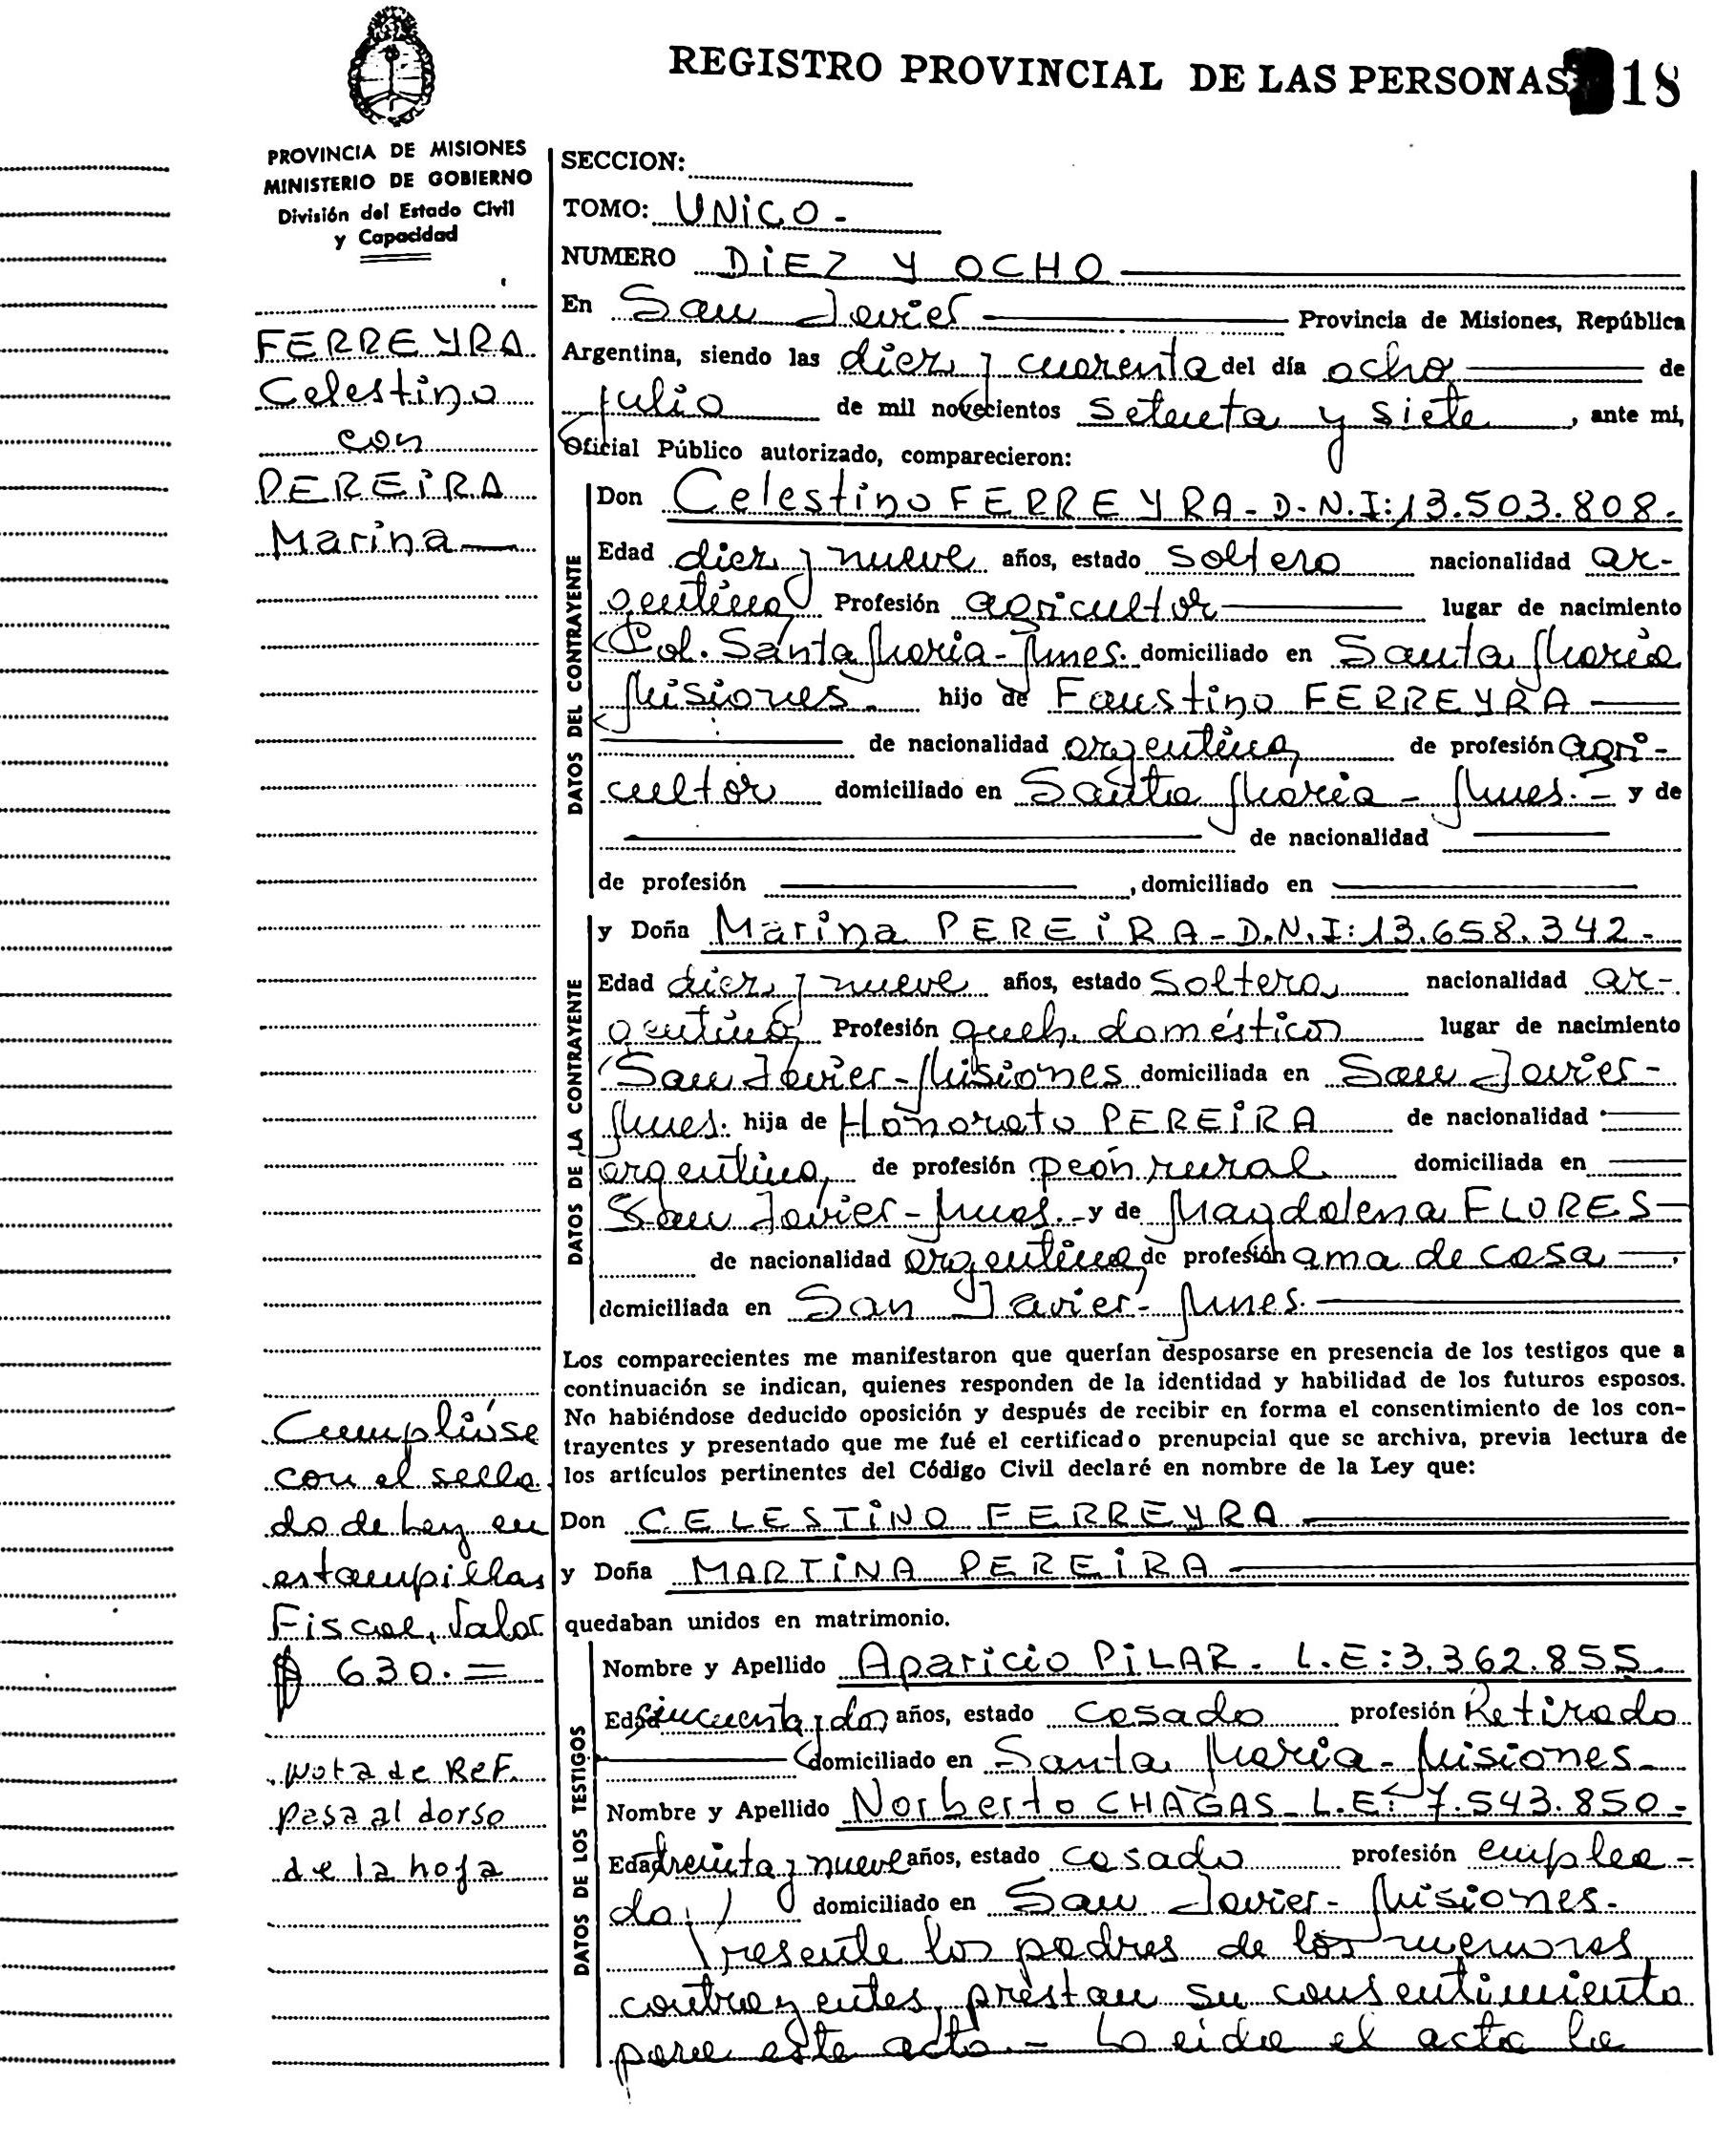 REGISTRO PROVINCIAL DE LAS PERSONAS 18
PROVINCIA DE MISIONES
MINISTERIO DE GOBIERNO
División del Estado Civil
y Capacidad
FERREYRA
Celestino
con
PEREIRA
Marina
Cumplióse
con el sella
do de Ley en
estampillas
Fiscal, Valor
$ 630.=
Nota de REF.
pasa al dorso
de la hoja
SECCION:
TOMO: UNICO-
NUMERO DIEZ Y OCHO
En San Javier Provincia de Misiones, República
Argentina, siendo las diez y cuarenta del día ocho de
julio de mil novecientos setenta y siete, ante mi,
Oficial Público autorizado, comparecieron:
DATOS DEL CONTRAYENTE
Don Celestino FERREYRA- D.N.I: 13.503.808.
Edad diez y nueve años, estado soltero nacionalidad ar-
gentina Profesión agricultor lugar de nacimiento
Col. Santa María-Mnes. domiciliado en Santa María
Misiones. hijo de Faustino FERREYRA
de nacionalidad argentina de profesión agri-
cultor domiciliado en Santa María - Mnes.- y de
de nacionalidad
de profesión , domiciliado en
DATOS DE LA CONTRAYENTE
y Doña Marina PEREIRA-D.N.I: 13.658.342-
Edad diez y nueve años, estado soltera nacionalidad ar-
gentina Profesión queh. domésticos lugar de nacimiento
San Javier-Misiones domiciliada en San Javier-
Mnes. hija de Honorato PEREIRA de nacionalidad
argentina, de profesión peón rural domiciliada en
San Javier-Mnes.- y de Magdalena FLORES
de nacionalidad argentina de profesión ama de casa,
domiciliada en San Javier- Mnes.
Los comparecientes me manifestaron que querían desposarse en presencia de los testigos que a
continuación se indican, quienes responden de la identidad y habilidad de los futuros esposos.
No habiéndose deducido oposición y después de recibir en forma el consentimiento de los con-
trayentes y presentado que me fué el certificado prenupcial que se archiva, previa lectura de
los artículos pertinentes del Código Civil declaré en nombre de la Ley que:
Don CELESTINO FERREYRA
y Doña MARTINA PEREIRA
quedaban unidos en matrimonio.
DATOS DE LOS TESTIGOS
Nombre y Apellido Aparicio PILAR. L.E: 3.362.855.
Edad cincuenta y dos años, estado casado profesión Retirado
domiciliado en Santa María-Misiones-
Nombre y Apellido Norberto CHAGAS-L.E: 7.543.850-
Edad treinta y nueve años, estado casado profesión emplea-
do, domiciliado en San Javier- Misiones.
Presente los padres de los menores
contrayentes, prestan su consentimiento
para este acto.- Leída el acta la